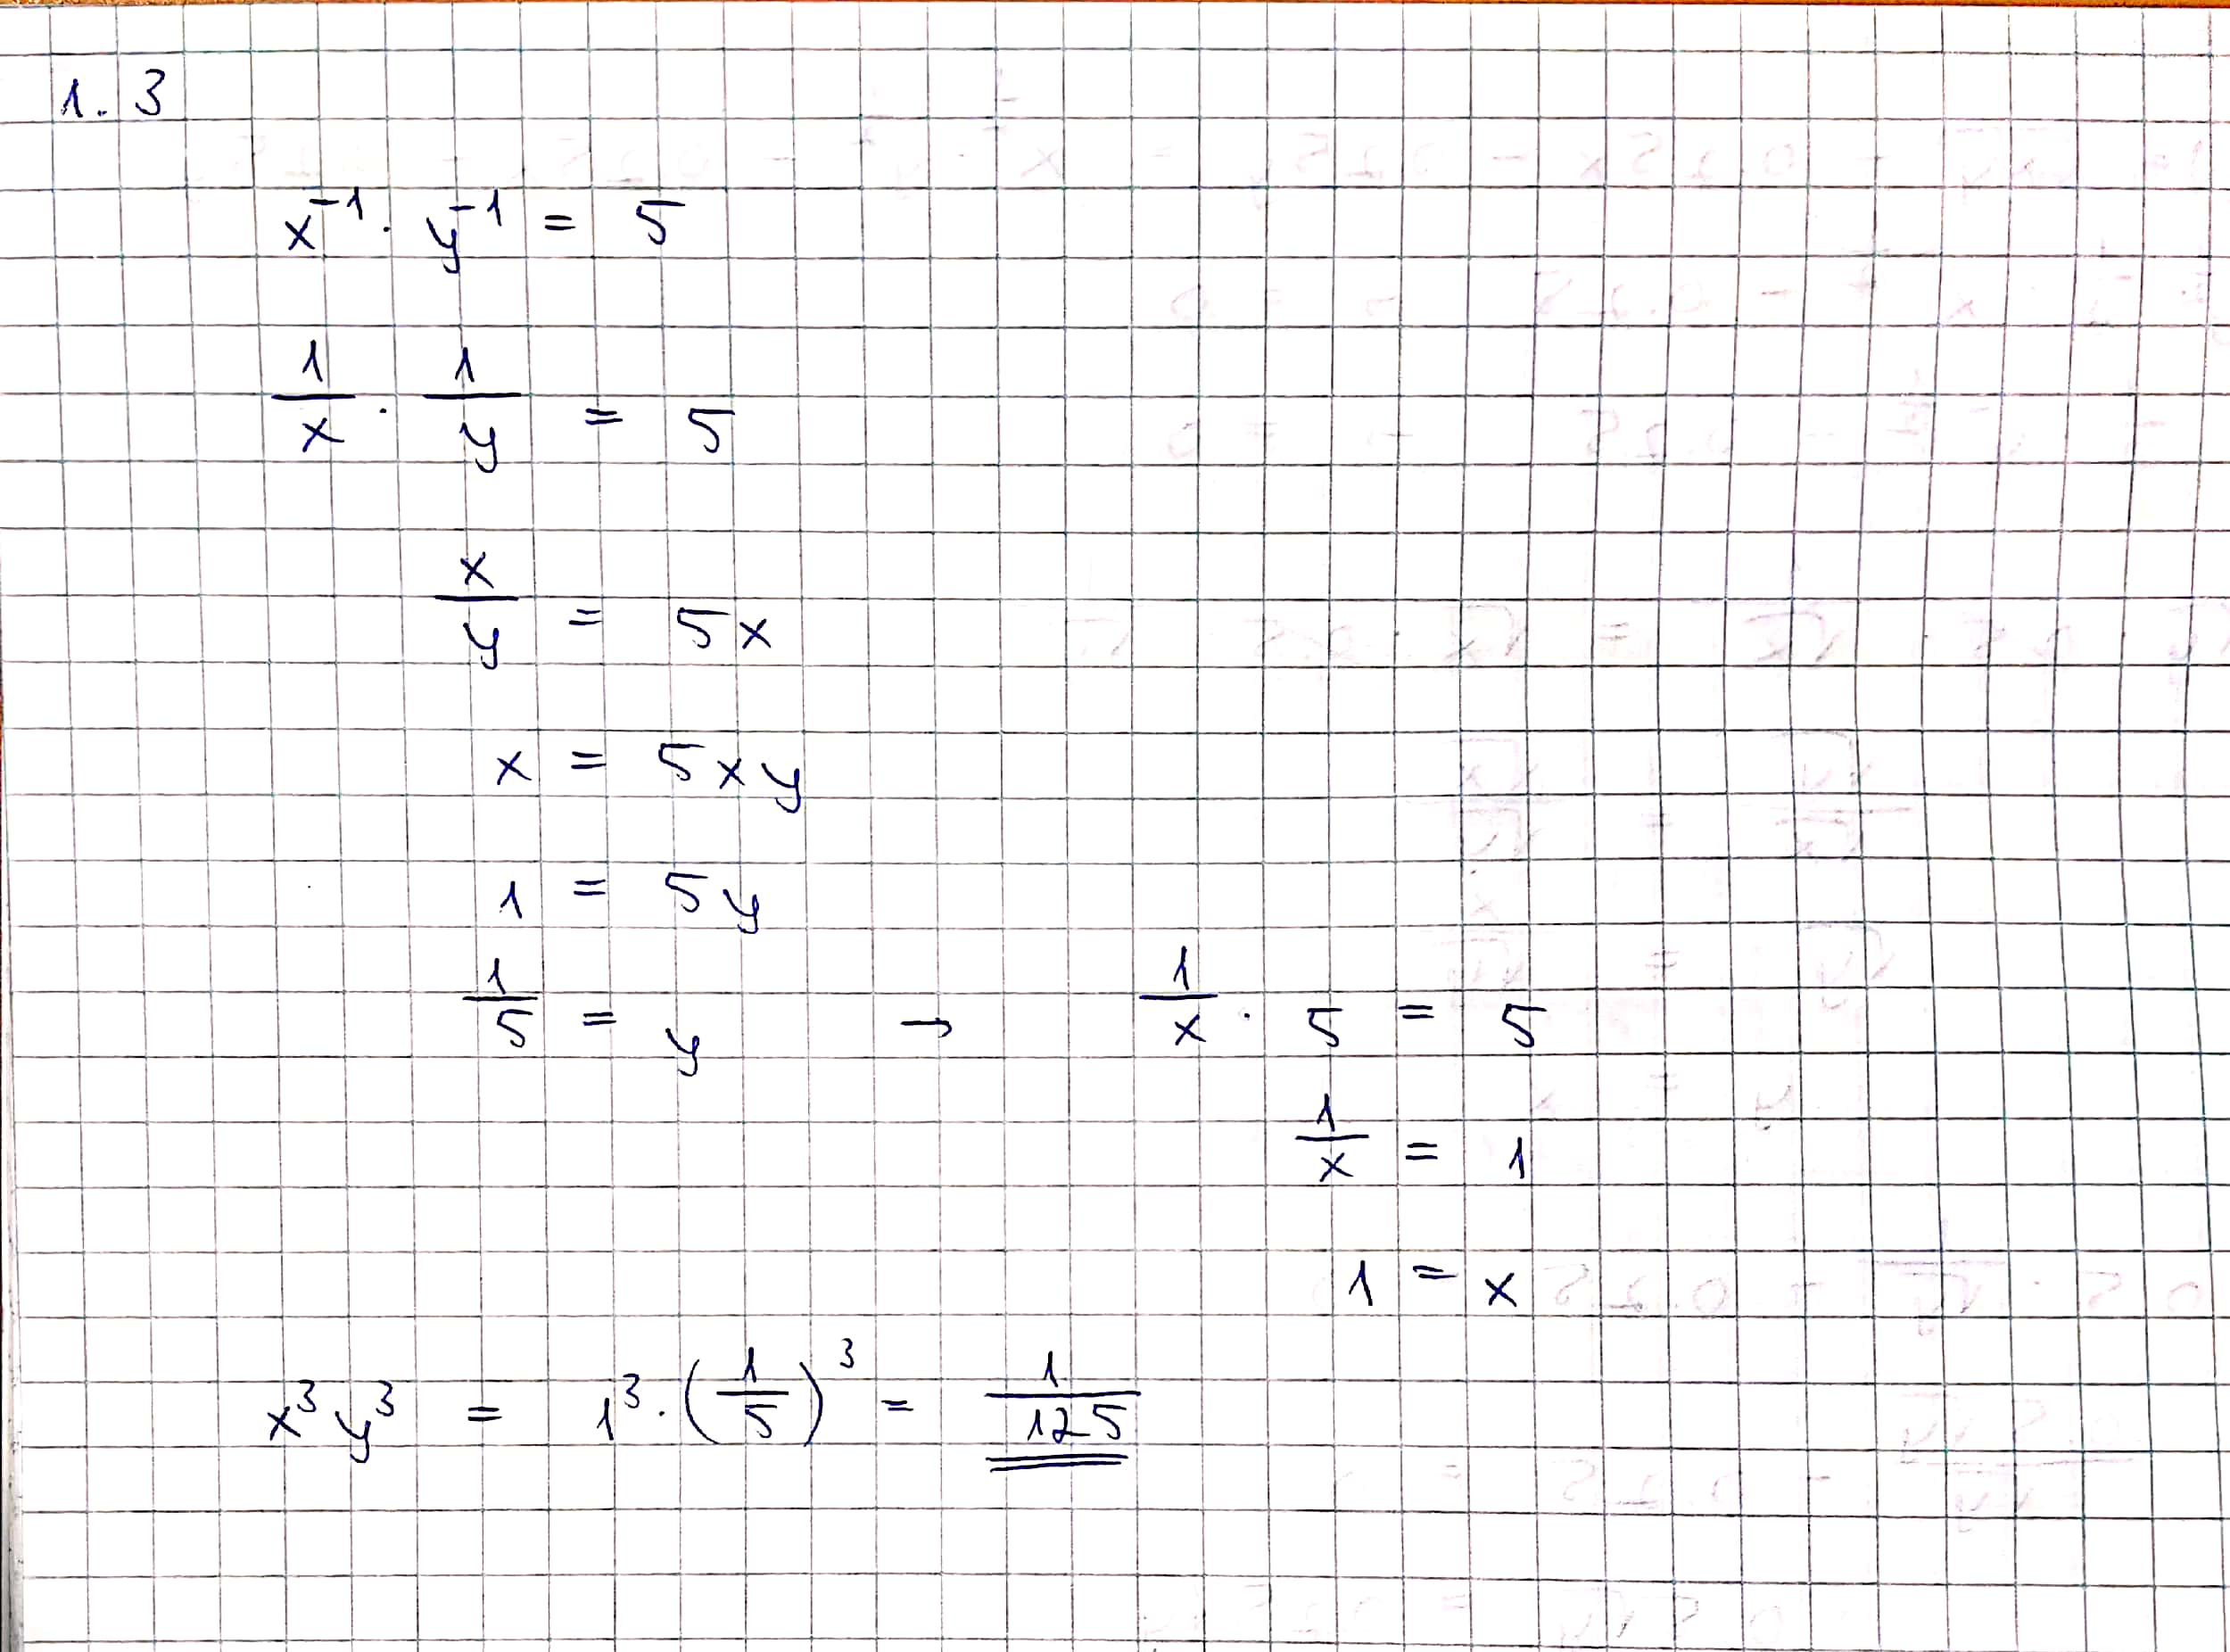 1. 3
x⁻¹ · y⁻¹ = 5
1/x · 1/y = 5
x/y = 5x
x = 5xy
1 = 5y
1/5 = y → 1/x · 5 = 5
1/x = 1
1 = x
x³y³ = 1³ · (1/5)³ = 1/125